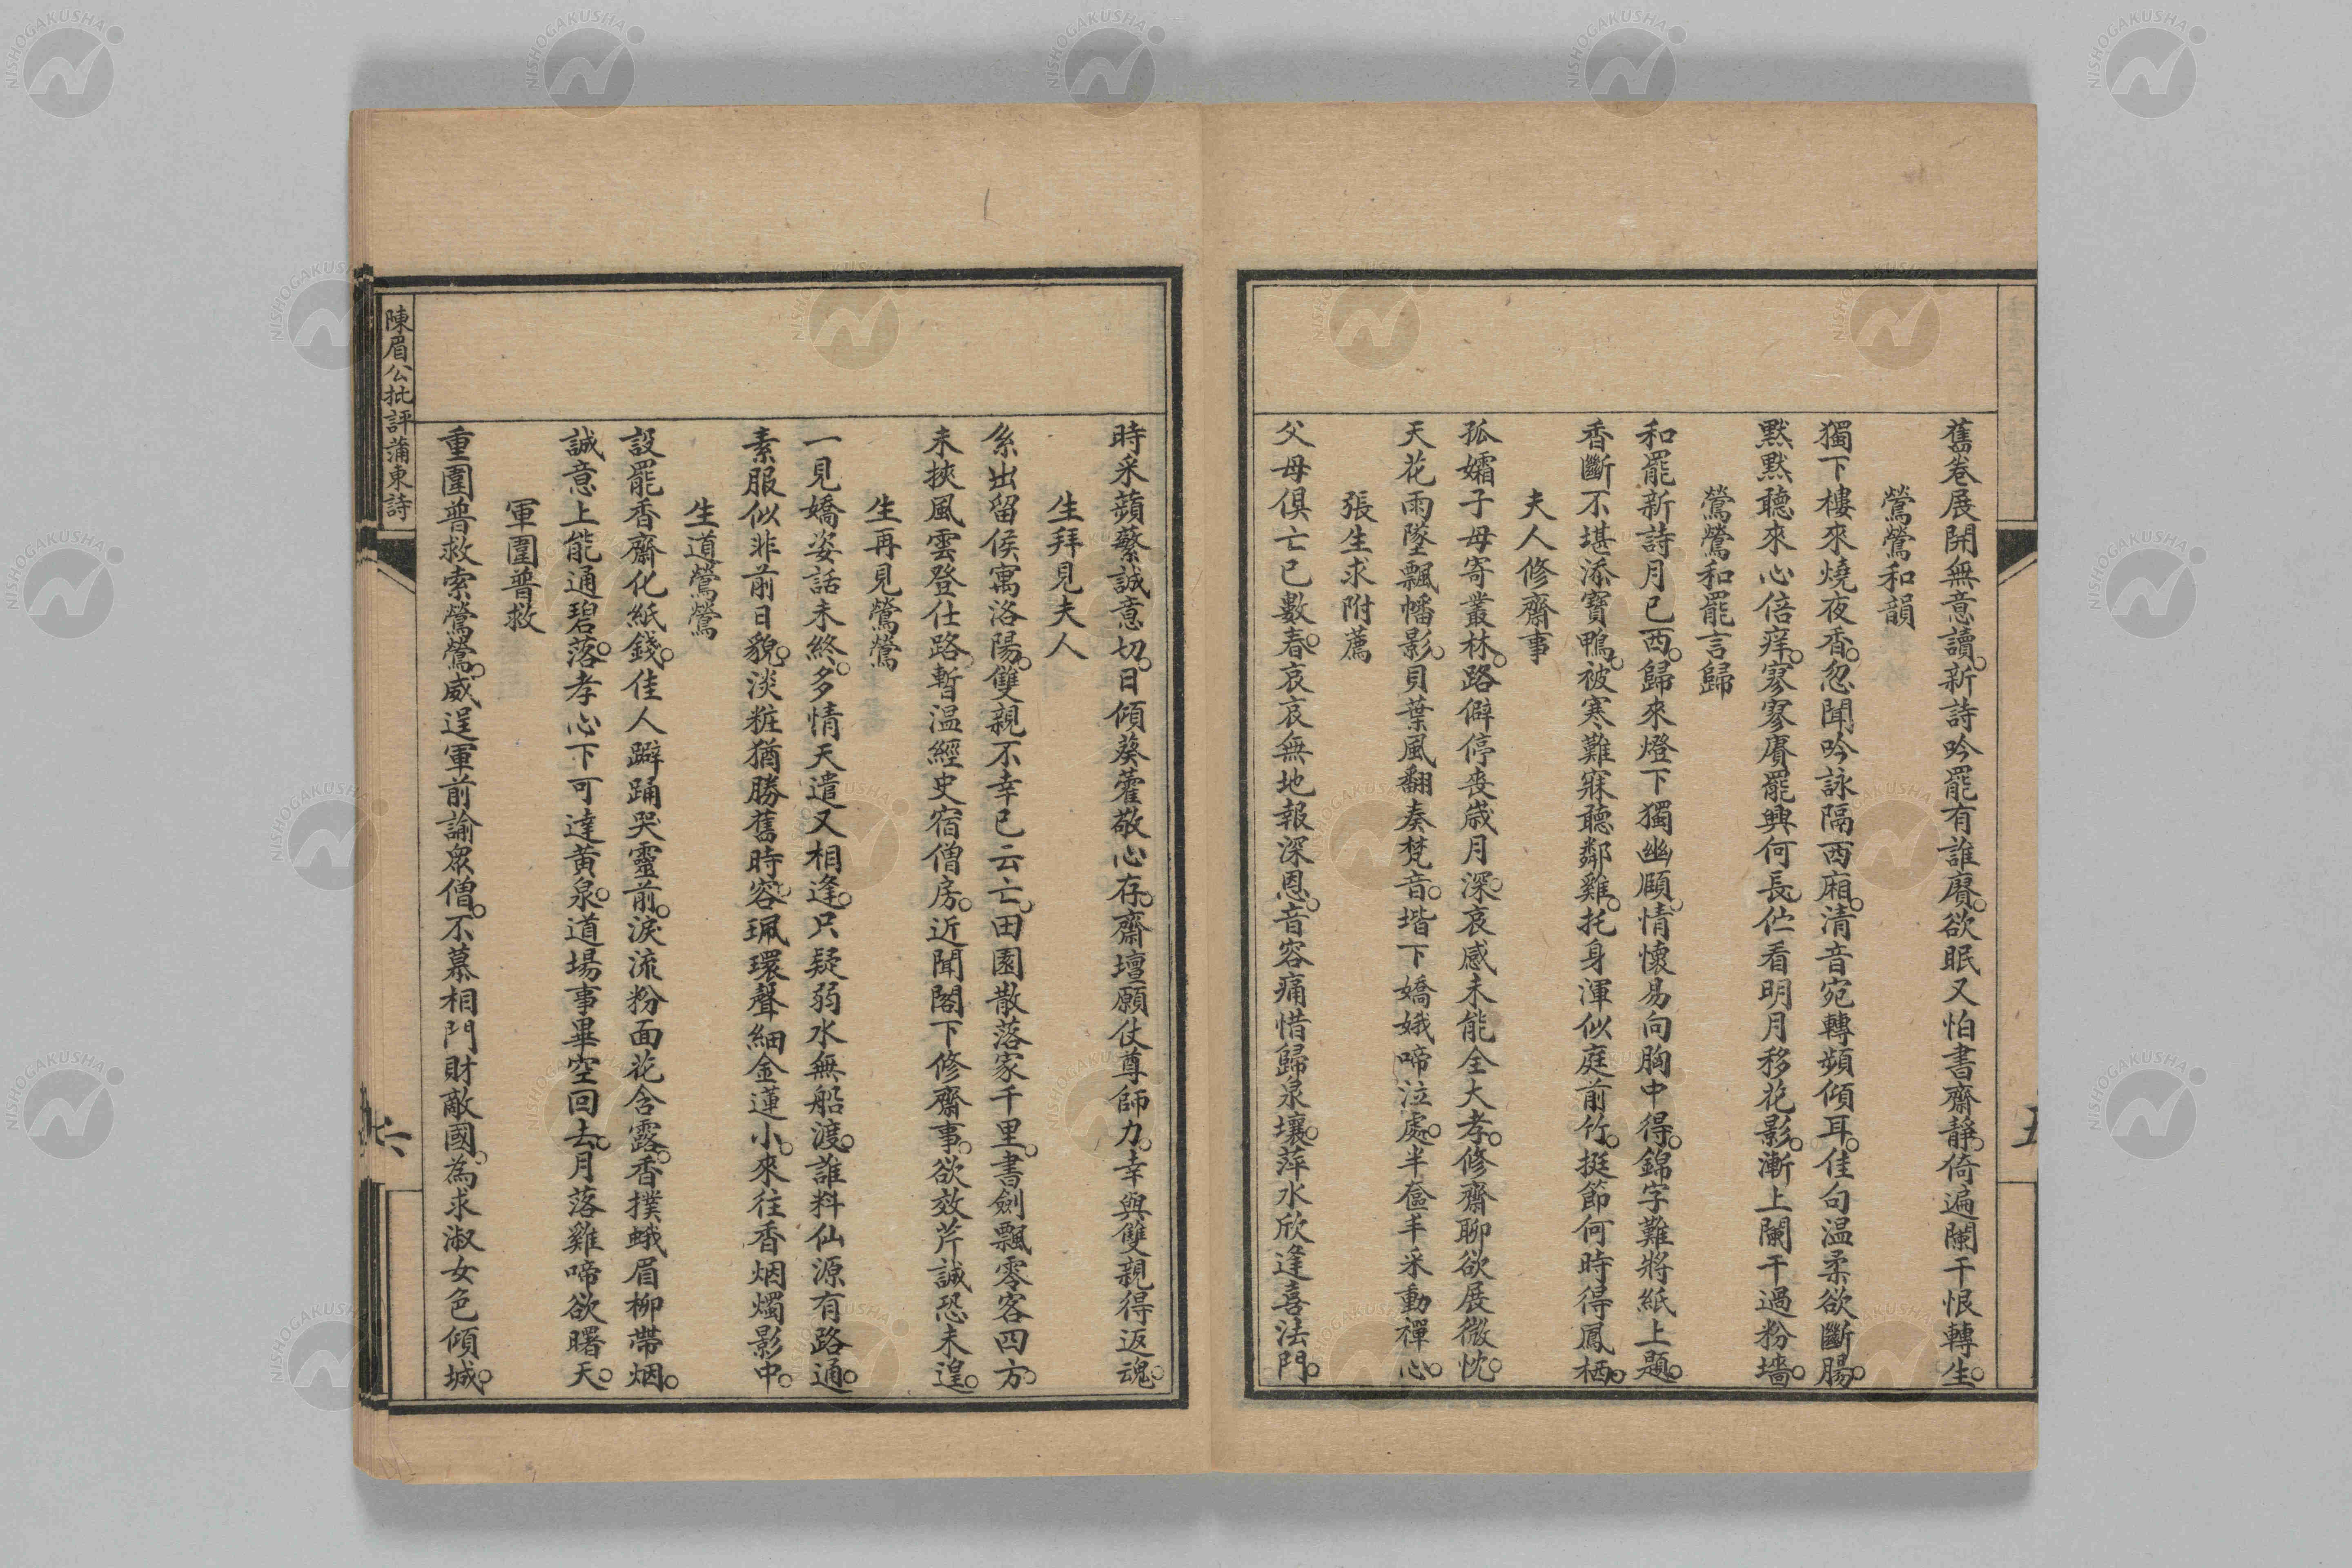 舊卷展開無意讀。新詩吟罷有誰賡。欲眠又怕書齋靜。倚遍闌干恨轉生。
鶯鶯和韻
獨下樓來燒夜香。忽聞吟詠隔西廂。清音宛轉頻傾耳。佳句温柔欲斷腸。
默默聽來心倍痒。寥寥賡罷興何長。伫看明月移花影。漸上闌干過粉墻。
鶯鶯和罷言歸
和罷新詩月已西。歸來燈下獨幽頤。情懷易向胸中得。錦字難將紙上題。
香斷不堪添寶鴨。被寒難寐聽鄰雞。托身渾似庭前竹。挺節何時得鳳栖。
夫人修齋事
孤孀子母寄叢林。路僻停喪歲月深。哀感未能全大孝。修齋聊欲展微忱。
天花雨墜飄幡影。貝葉風翻奏梵音。堦下嬌娥啼泣處。半奩丰采動禪心。
張生求附薦
父母俱亡已數春。哀哀無地報深恩。音容痛惜歸泉壤。萍水欣逢喜法門。
時采蘋蘩誠意切。日傾葵藿敬心存。齋壇願仗尊師力。幸與雙親得返魂。
生拜見夫人
系出留侯寓洛陽。雙親不幸已云亡。田園散落家千里。書劍飄零客四方。
未挾風雲登仕路。暫温經史宿僧房。近聞閣下修齋事。欲效芹誠恐未遑。
生再見鶯鶯
一見嬌姿話未終。多情天遣又相逢。只疑弱水無船渡。誰料仙源有路通。
素服似非前日貌。淡粧猶勝舊時容。珮環聲細金蓮小。來往香烟燭影中。
生道鶯鶯
設罷香齋化紙錢。佳人躃踊哭靈前。淚流粉面花含露。香撲蛾眉柳帶烟。
誠意上能通碧落。孝心下可達黄泉。道場事畢空回去。月落雞啼欲曙天。
軍圍普救
重圍普救索鶯鶯。威逞軍前諭眾僧。不慕相門財敵國。為求淑女色傾城。
陳眉公批評蒲東詩
六
NISHOGAKUSHA